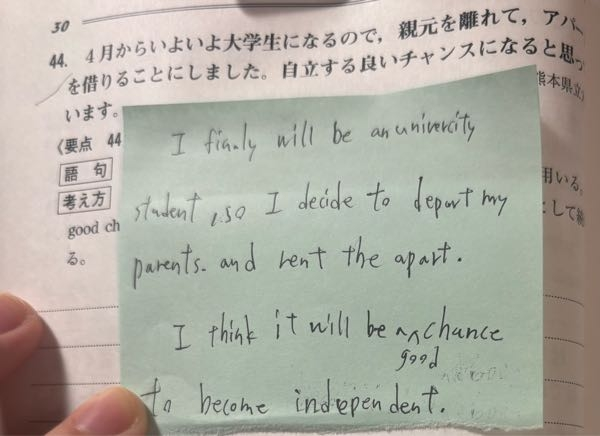 30
44. 4月からいよいよ大学生になるので，親元を離れて，アパー
を借りることにしました。自立する良いチャンスになると思っ
います。
熊本県立
〈要点 44
語句
用いる。
考え方
として
good ch
る。
I finaly will be an univercity
student, so I decide to depart my
parents. and rent the apart.
I think it will be a good chance
to become independent.